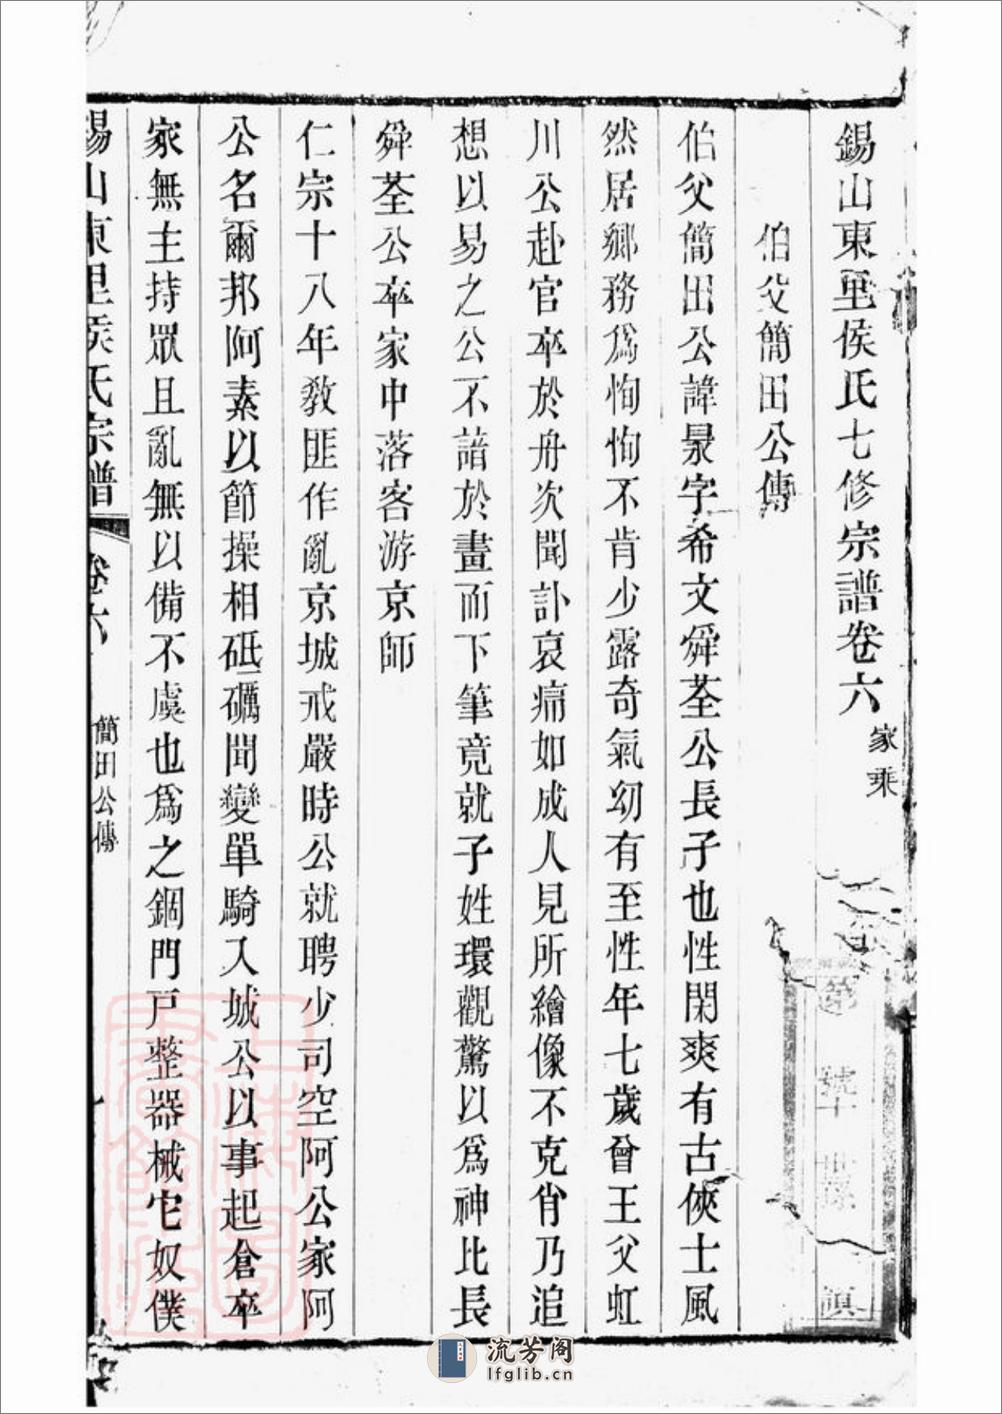 錫山東里侯氏七修宗譜卷六 家乘
伯父簡田公傳
伯父簡田公諱景字希文舜荃公長子也性閑爽有古俠士風
然居鄉務爲恂恂不肯少露奇氣幼有至性年七歲曾王父虹
川公赴官卒於舟次聞訃哀痛如成人見所繪像不克肖乃追
想以易之公不諳於畫而下筆竟就子姓環觀驚以爲神比長
舜荃公卒家中落客游京師
仁宗十八年敎匪作亂京城戒嚴時公就聘少司空阿公家阿
公名爾邦阿素以節操相砥礪聞變單騎入城公以事起倉卒
家無主持眾且亂無以備不虞也爲之錮門戸整器械宅奴僕
錫山東里侯氏宗譜 卷六 簡田公傳 一
第 號十 世孫
流芳阁
lfglib.cn